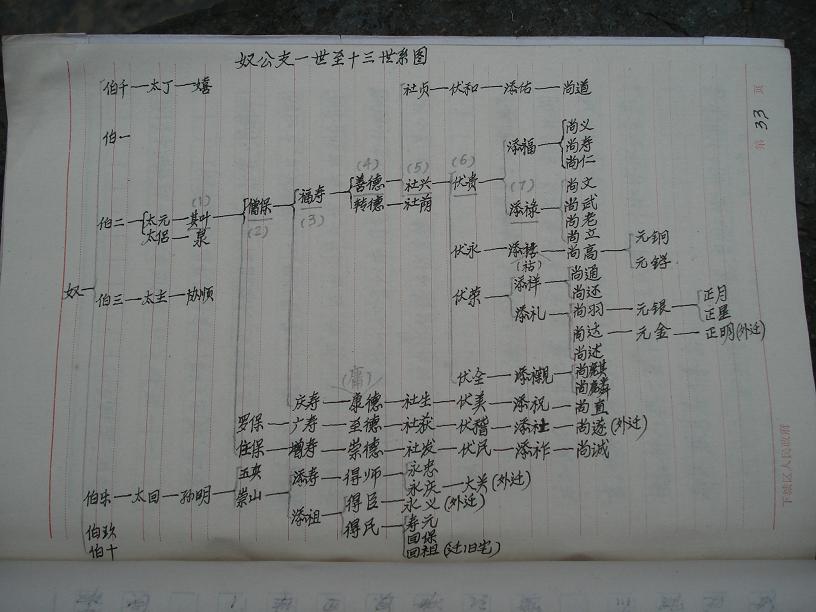 奴公支一世至十三世系图
第 33 页
伯千—太丁—嬉
社贞—伏和—添佑—尚道
伯一
添福 尚义
尚寿
尚仁
(4)
善德 (5) 社兴 (6) 伏贵
转德—社荫
(7)
添禄 尚文
尚武
尚老
尚立
伯二 太元—(1)其叶 儒保 福寿
太侣—泉 (2) (3)
伏永—添禧—尚高 元铜
(祜) 元锣
奴
伯三—太主—协顺
伏荣 添祥 尚通
尚还
添礼 尚羽—元银 正月
正星
尚达—元金—正明(外迁)
尚述
伏全—添襯 尚麒
尚麟
(庸)
庆寿—康德—社生—伏美—添祝—尚直
罗保—广寿—至德—社荻—伏稽—添社—尚遂(外迁)
住保—增寿—崇德—社发—伏民—添祚—尚诚
伯乐—太回—孙明 五央
崇山 添寿—得师 永忠
永庆—大关(外迁)
添祖 得臣—永义(外迁)
得民 寿元
回保
回祖(迁旧宅)
伯玖
伯十
下城区人民政府